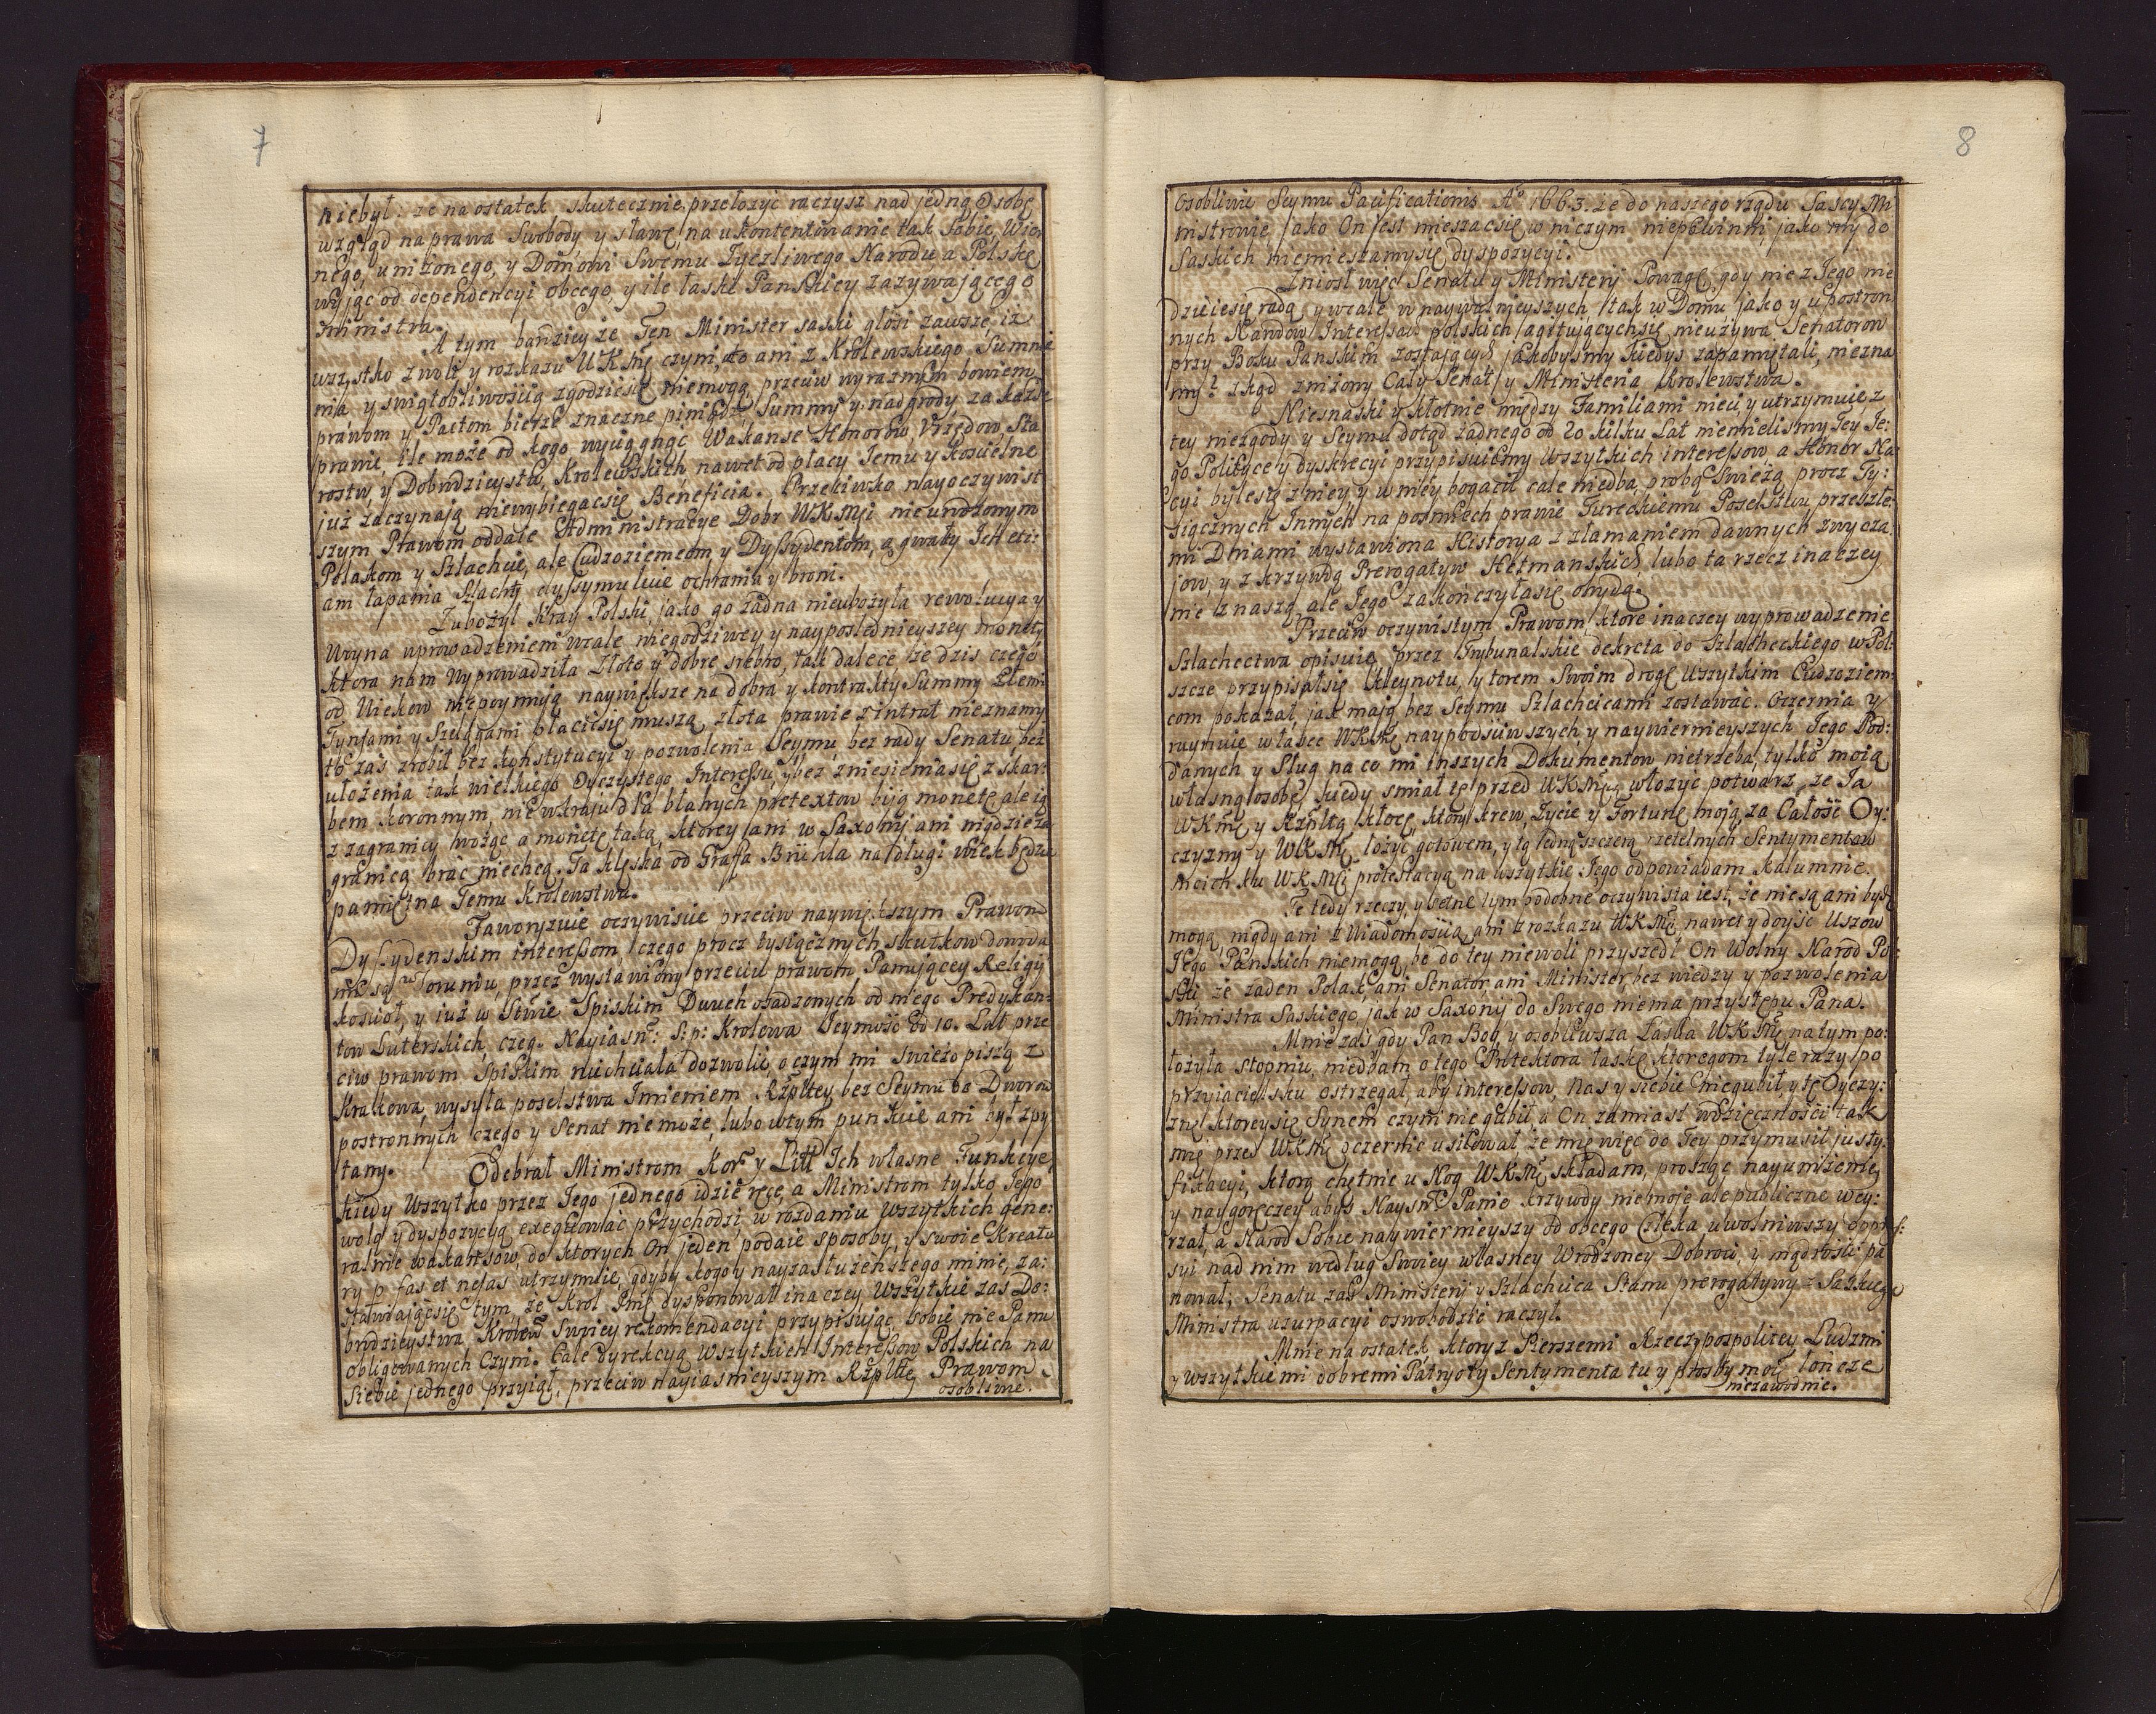 7
niebył: że na ostatek skutecznie przełożyć raczysz nad jedną Osobę
wzgląd na prawa Swobody y sławę, na ukontentowanie tak Sobie Wier
nego, uniżonego, y Domowi Swemu Życzliwego Narodu a Polskę
wyjąć od dependencyi obcego, y ile łaski Panskiey zażywaiącego
Ministra.
A tym bardziey że Ten Minister saski głosi zawsze, iż
wszystko z woli y rozkazu WKMci czyni, to ani z Krolewskiego Sumnie
nia y swiątobliwoscią zgodzić się niemogą, przeciw wyraznym bowiem
prawom y Pactom bierze znaczne pieniądze Summy y nadgrody za każde
prawie, ile może od kogo wyciągnąć Wakanse Honorow, Urzędow, Sta
rostw, y Dobrodzieystw Krolewskich, nawet od płacy Jemu y koscielne
już zaczynają niewybiegać się Beneficia. Przeciwko nayoczywist
szym Prawom oddaie Administracye Dobr WKMci nieurodzonym
Polakom y Szlachcie, ale Cudzoziemcom y Dyssydentom, a gwałty Ich eti:
am łapania Slachty dyssymuluie ochrania y broni.
Zubożył Kray Polski, jako go żadna nieubożyła rewolucya y
Woyna wprowadzeniem wcale niegodziwey y naypoślednieyszey monety
ktora nam wyprowadziła Złoto y dobre srebro, tak dalece że dzis czego
od Wiekow niepoymują naywiększe na dobra y kontrakty Summy złemi
Tynfami y Szelągami płacić się muszą, złota prawie z intrat nieznamy
to zaś zrobił bez konstytucyi y pozwolenia Seymu, bez rady Senatu bez
ułożenia tak wielkiego Oyczystego Interessu, y bez zniesienia się z skar:
bem koronnym, nie w kraju dla błahych pretextow biją monetę, ale ią
z zagranicy wożąc a monetę taką, ktorey ani w Saxonij ani nigdzie za
granicą brać niechcą. Ta klęska od Graffa Brühla na długi wiek będzie
pamiętna Temu Krolewstwu.
Faworyzuie oczywiscie przeciw naywiększym Prawom
Dyssydenskim interessom, czego procz tysiącznych skutkow dowoda
mi są w Toruniu, przez wystawiony przeciw prawom Panującey Religij
kościoł, y już w Stwie Spiskim Dwuch osadzonych od niego Predykan:
tow Luterskich, czego Nayiasn: S: p: Krolowa Jeymość od 10. Lat prze
ciw prawom Spiskim niechciała dozwolić, o czym mi świeżo piszą z
Krakowa, wysyła poselstwa Imieniem Rzpltey bez Seymu do Dworow
postronnych czego y Senat nie może, lubo w tym punkcie ani był zpy
tany.
Odebrał Ministrom Kor: y Litt: Ich własne Funkcye,
kiedy Wszytko przez Jego jednego idzie ręce, a Ministrom tylko Jego
wolą y dyspozycyą exequować przychodzi, w rozdaniu wszytkich gene:
ralnie wakansow, do ktorych On jeden podaie sposoby, y swoie Kreatu
ry p fas et nefas utrzymuie, gdyby kogo y nayzasłużeńszego minie, za:
stawiając się tym, że Krol Jmć dysponował inaczey Wszytkie zas Do:
brodzieystwa Krolew: Swoiey rekomendacyi przypisując, Sobie nie Panu
obligowanych czyni. Całe dyrekcyą wszytkich Interessow Polskich na
Siebie jednego przyiął, przeciw nayiasnieyszym Rzpltey Prawom
osobliwie.
8
Osobliwie Seymu Pacificationis Aº 1663. że do naszego rządu Sascy Mi
nistrowie, jako On jest mieszać się w niczym niepowinni, jako my do
Saskich niemieszamy się dyspozycyi.
Zniosł więc Senatu y Ministerij Powagę, gdy nie z Jego nie
dzieie się radą, y wcale w naywalnieyszych, tak w Domu, jako y u postron
nych Narodow Interessach polskich agitujących się nieużywa Senatorow
przy Boku Panskim zostających, jakobyśmy kiedyś zapamiętali, niezna
my? z kąd zniżony Cały Senat y Ministeria Krolewstwa.
Niesnaski y kłotnie między Familiami nieci, y utrzymuie z
tey niezgody y Seymu dotąd żadnego od 20 kilku Lat niemielismy Tey Je:
go Polityce y dyskrecyi przypisuiemy Wszytkich interessow a Honor Na
cyi byle się z niey y w niey bogacił cale niedba, probą świeżą procz Ty:
siącznych Innych na posmiech prawie Tureckiemu Poselstwu przeszłe:
mi Dniami wystawiona Historya z złamaniem dawnych zwycza
jow, y z krzywdą Prerogatyw Hetmanskich, lubo ta rzecz inaczey
nie z naszą ale Jego zakończyła się ohydą.
Przeciw oczywistym Prawom, ktore inaczey wyprowadzenie
Szlachectwa opisuią przez Trybunalskie dekreta do Szlacheckiego w Pol:
szcze przypisał się kleynotu, y torem Swoim drogę Wszytkim Cudzoziem:
com pokazał, jak mają bez Seymu Szlachcicami zostawać. Oczernia y
ruynuie w łasce WKMci naypodsciwszych, y naywiernieyszych Jego Pod:
danych y Sług na co mi inszych Dokumentow nietrzeba, tylko moią
własną osobę, kiedy smiał tę przed WKMcią włożyć potwarz, że Ja
WKMć y Rzpltą kłocę, ktory krew, Życie y Fortunę moją za Całość Oy:
czyzny y WKMć łożyć gotowem, y tą jedną szczerą rzetelnych Sentymentow
moich ku WKMci protestacyą na wszytkie Jego odpowiadam kalumnie.
Te tedy rzeczy, y setne tym podobne oczywista iest, że nie są ani być
mogą, nigdy ani z Wiadomością, ani z rozkazu WKMci, nawet y doyść Uszow
Jego Panskich niemogą, bo do tey niewoli przyszedł On Wolny Narod Po:
lski że żaden Polak, ani Senator, ani Minister, bez wiedzy y pozwolenia
Ministra Saskiego, jak w Saxonij do Swego niema przystępu Pana.
Mnie zaś gdy Pan Bog, y osobliwsza Łaska WKMci na tym po:
łożyła stopniu, niedbam o tego Protektora łaskę, ktoregom tyle razy po
przyiacielsku ostrzegał, aby interessow, Nas y siebie niegubił, y tę Oyczy:
znę ktorey się Synem czyni nie gubił, a On zamiast wdzięczności tak
mię przed WKMcią oczernić usiłował, że mię więc do Tey przymusił justy:
fikacyi, ktorą chętnie u Nog WKMci składam, prosząc nayuniżeniey
y naygoręczey abyś Nayśn: Panie krzywdy nie moje ale publiczne wey:
rzał, a Narod Sobie naywiernieyszy od obcego Czleka uwolniwszy oppres:
syi nad nim według Swoiey własney Wrodzoney Dobroci, y mądrości pa
nował, Senatu zaś Ministerij y Szlachcica Stanu prerogatywy z Saskiego
Ministra uzurpacyi oswobodzić raczył.
Mnie na ostatek ktory z Pierszemi Rzeczypospolitey Ludzmi
y wszytkiemi dobremi Patryoty Sentymenta tu y prosby moie łończe
niezawodnie.